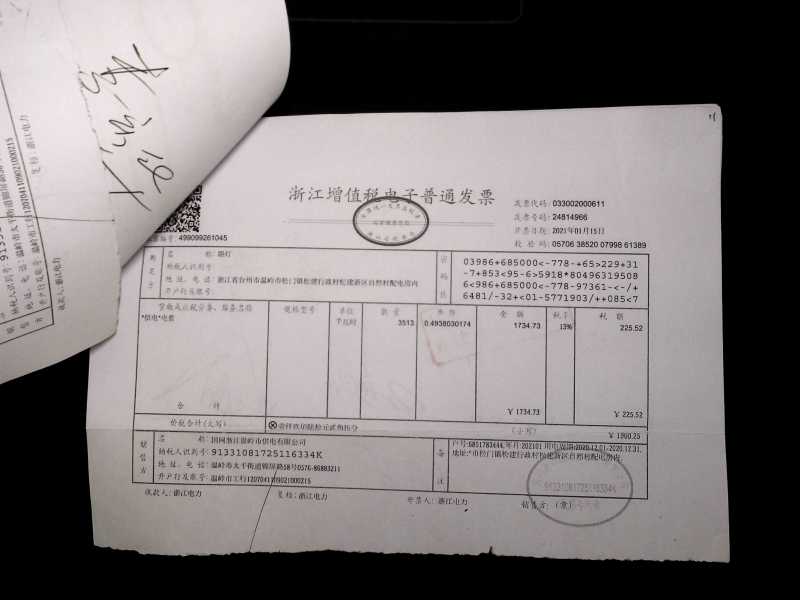 浙江增值税电子普通发票
发票代码: 033002000611
发票号码: 24814966
开票日期: 2021年01月15日
校验码: 05706 38520 07998 61389
编号: 499099261045
名称: 路灯
纳税人识别号:
地址、电话: 浙江省台州市温岭市松门镇松建行政村松建新区自然村配电房内
开户行及账号:
03986+685000<-778-+65>229+31
-7+853<95-6>5918*80496319508
6<986+685000<-778-97361-<-/+
6481/-32+<01-5771903/++085<7
货物或应税劳务、服务名称 规格型号 单位 数量 单价 金额 税率 税额
*供电*电费 千瓦时 3513 0.4938030174 1734.73 13% 225.52
合计 ¥1734.73 ¥225.52
价税合计(大写) ⊗壹仟玖佰陆拾元贰角伍分 (小写) ¥1960.25
销售方
名称: 国网浙江温岭市供电有限公司
纳税人识别号: 91331081725116334K
地址、电话: 温岭市太平街道锦屏路58号0576-86883211
开户行及账号: 温岭市工行1207041109021000215
备注
户号:6851783444,年月:202101
地址:*市松门镇松建行政村松建新区自然村配电房内
收款人: 浙江电力 复核: 浙江电力 开票人: 浙江电力 销售方: (章)
91331081725116334K
温岭市太平街道锦屏路
温岭市工行1207041109021000215
收款人: 浙江电力
复核: 浙江电力